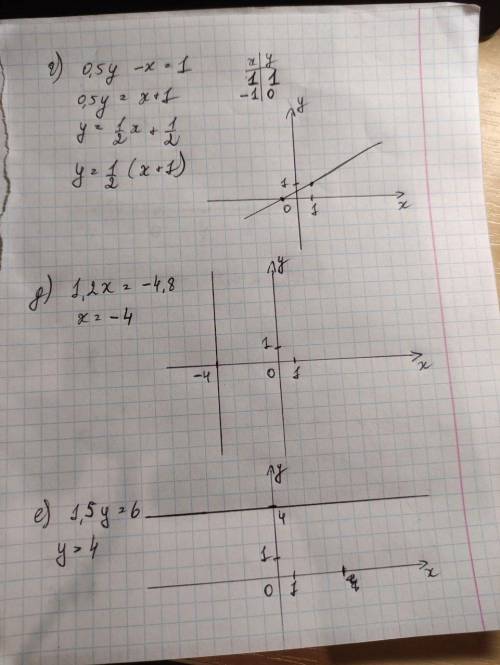 г) 0,5y - x = 1
0,5y = x+1
y = 1/2 x + 1/2
y = 1/2 (x+1)
x | y
1 | 1
-1 | 0
y
1
0 1 x
д) 1,2x = -4,8
x = -4
y
1
-4 0 1 x
е) 1,5y = 6
y = 4
y
4
1
0 1 x